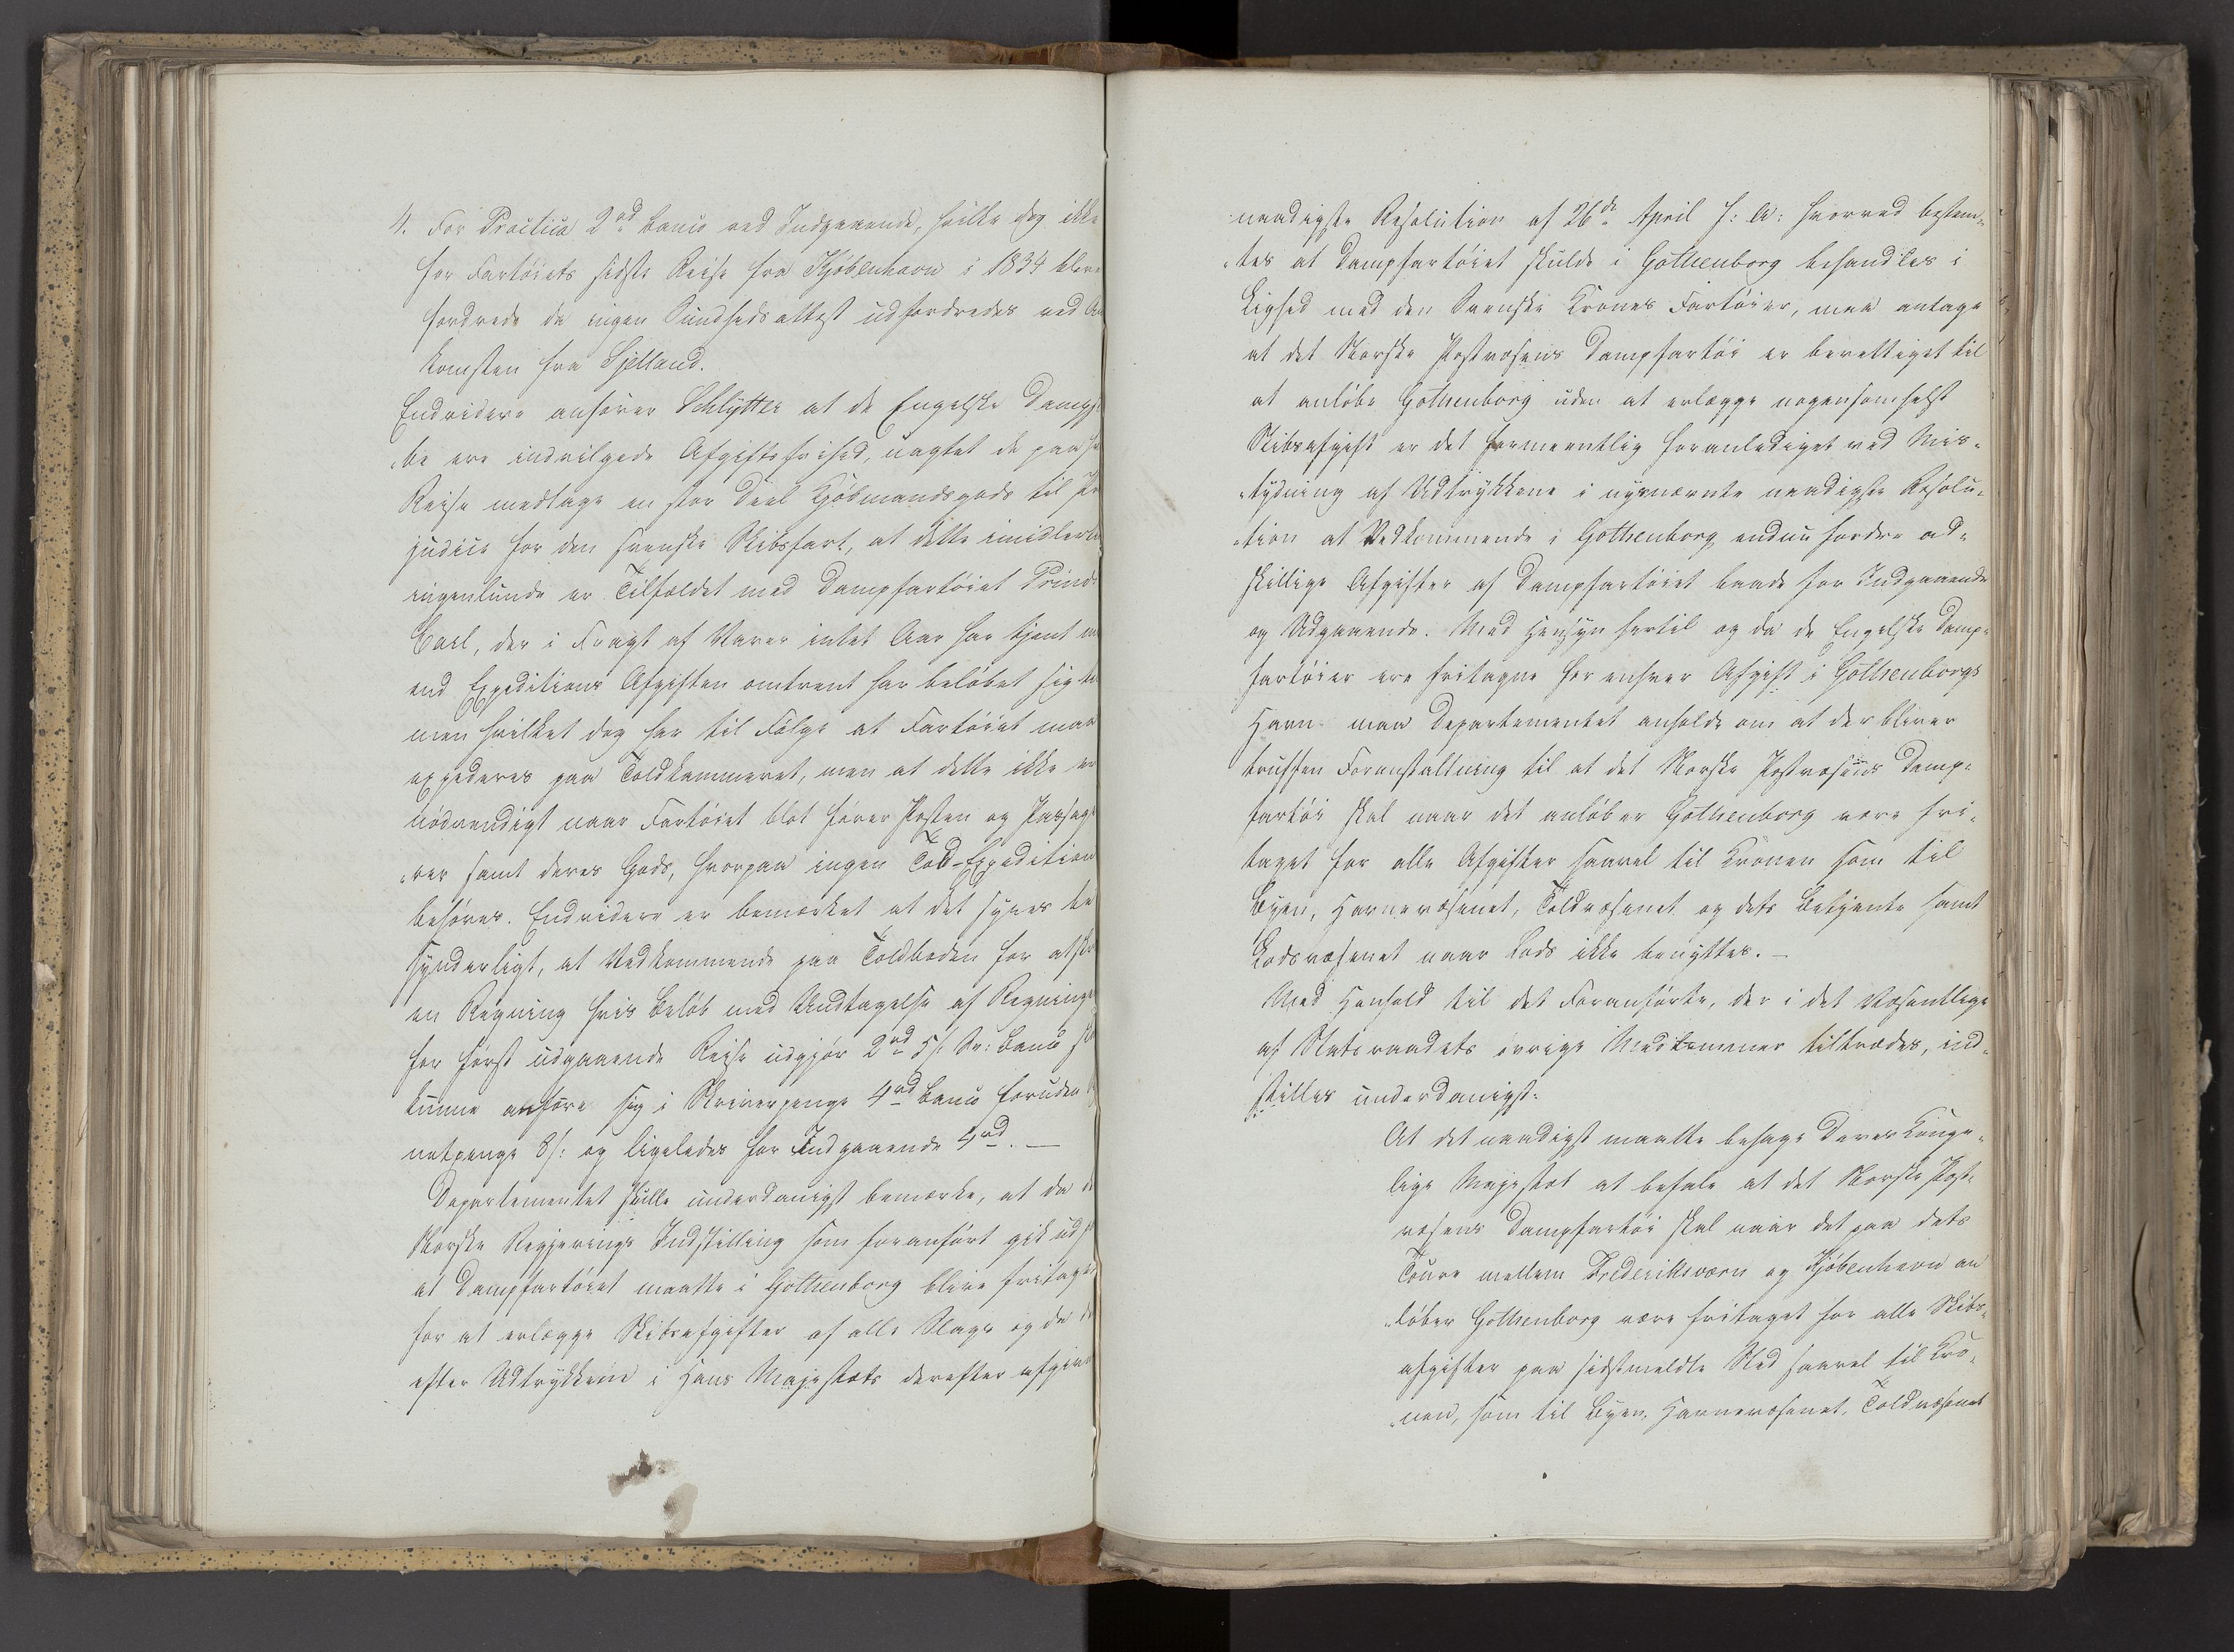 4. For Practica 2rd banco ved Indgaaende, hvilke dog ikke
for Fartöiets sidste Reise fra Kjöbenhavn i 1834 bleve
fordrede da ingen Sundhedsattest udfordredes ved An
komsten fra Sjelland.
Endvidere anförer Schlytter at de Engelske Damps
be ere indvilgede Afgiftsfrihed, uagtet de paa
Reise medtage en stor Deel Kjöbmandsgods til Præ
judice for den svenske Skibsfart, at dette imidlerti
ingenlunde er Tilfældet med Dampfartöiet Prinds
Carl, der i Fragt af Varer intet Aar har tjent
end Expeditions Afgiften omtrent har belöbet sig til
men hvilket dog har til Fölge at Fartöiet maa
expederes paa Toldkammeret, men at dette ikke er
nödvendigt naar Fartöiet blot förer Posten og Passage
rer samt deres Gods, hvorpaa ingen Told-Expedition
behöves. Endvidere er bemærket at det synes be
synderligt, at Vedkommende paa Toldboden for at
en Regning hvis Belöb med Undtagelse af Regninge
for först udgaaende Reise udgjör 2rd 5s: Sv: banco
kunne anföre sig i Skriverpenge 4rd banco foruden
netpenge 8s: og ligeledes for Indgaaende 4rd. —
Departementet skulle underdanigst bemærke, at da
Norske Regjerings Indstilling som foranfört gik ud
at Dampfartöiet maatte i Gothenborg blive fritaget
for at erlægge Skibsafgifter af alle Slags og da
efter Udtrykkene i Hans Majestæts derefter afgivn
naadigste Resolution af 26de April f: A: hvorved bestem-
tes at Dampfartöiet skulde i Gothenborg behandles i
Lighed med den Svenske Krones Fartöier, maa antage
at det Norske Postvæsens Dampfartöi er berettiget til
at anlöbe Gothenborg uden at erlægge nogensomhelst
Skibsafgift er det formeentlig foranlediget ved Mis-
tydning af Udtrykkene i nysnævnte naadigste Resolu-
tion at Vedkommende i Gothenborg endnu fordre ad-
skillige Afgifter af Dampfartöiet baade for Indgaaende
og Udgaaende. Med Hensyn hertil og da de Engelske Damp-
fartöier ere fritagne for enhver Afgift i Gothenborgs
Havn maa Departementet anholde om at der bliver
truffen Foranstaltning til at det Norske Postvæsens Damp-
fartöi skal naar det anlöber Gothenborg være fri-
taget for alle Afgifter saavel til Kronen som til
Byen, Havnevæsenet, Toldvæsenet og dets Betjente samt
Lodsvæsenet naar Lods ikke benyttes. —
Med Henhold til det Foranförte, der i det Væsentlige
af Statsraadets övrige Medlemmer tiltrædes, ind-
stilles underdanigst:
At det naadigst maatte behage Deres Konge-
lige Majestæt at befale at det Norske Post-
væsens Dampfartöi skal naar det paa dets
Toure mellem Frederiksværn og Kjöbenhavn an
löber Gothenborg være fritaget for alle Skibs-
afgifter paa sidstmeldte Sted saavel til Kro-
nen, som til Byen, Havnevæsenet, Toldvæsenet